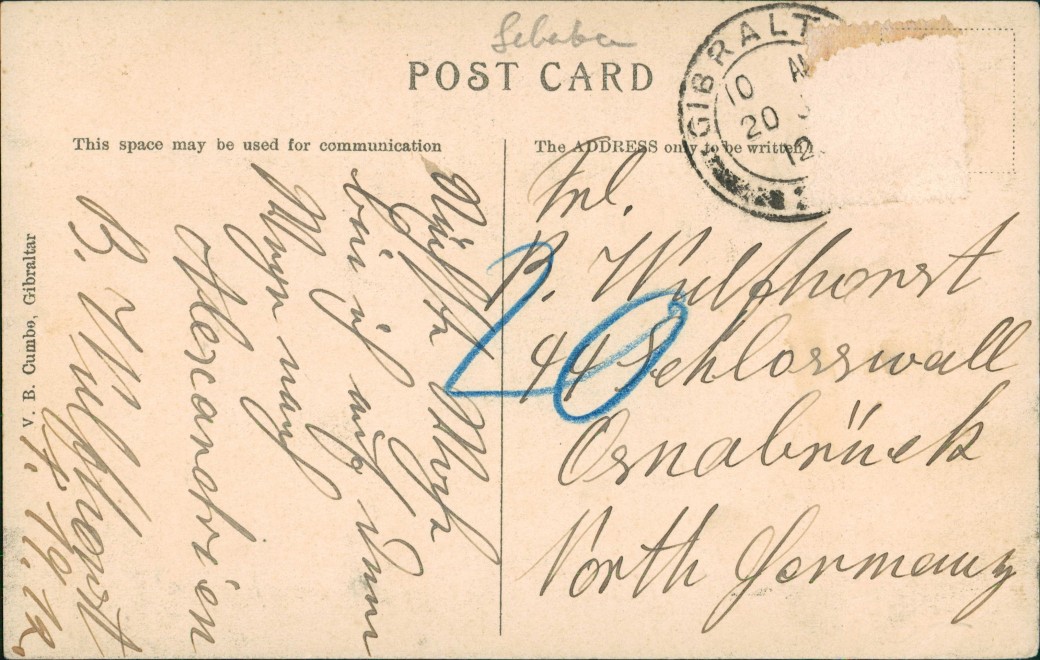 POST CARD
GIBRALT
10 A
20
12
This space may be used for communication
The ADDRESS only to be written
V. B. Cumbo, Gibraltar
Nächste Woche
bin ich auf dem
Wege nach
Alexandrien
B. Wulfhorst
19.12.
20
Frl.
B. Wulfhorst
44 Schlosswall
Osnabrück
North Germany